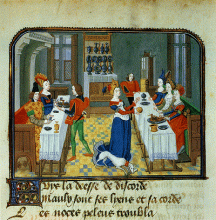 Fuis la deesse de discorde
Maulx sont ses liens et sa corde
Les noces peleus troubla